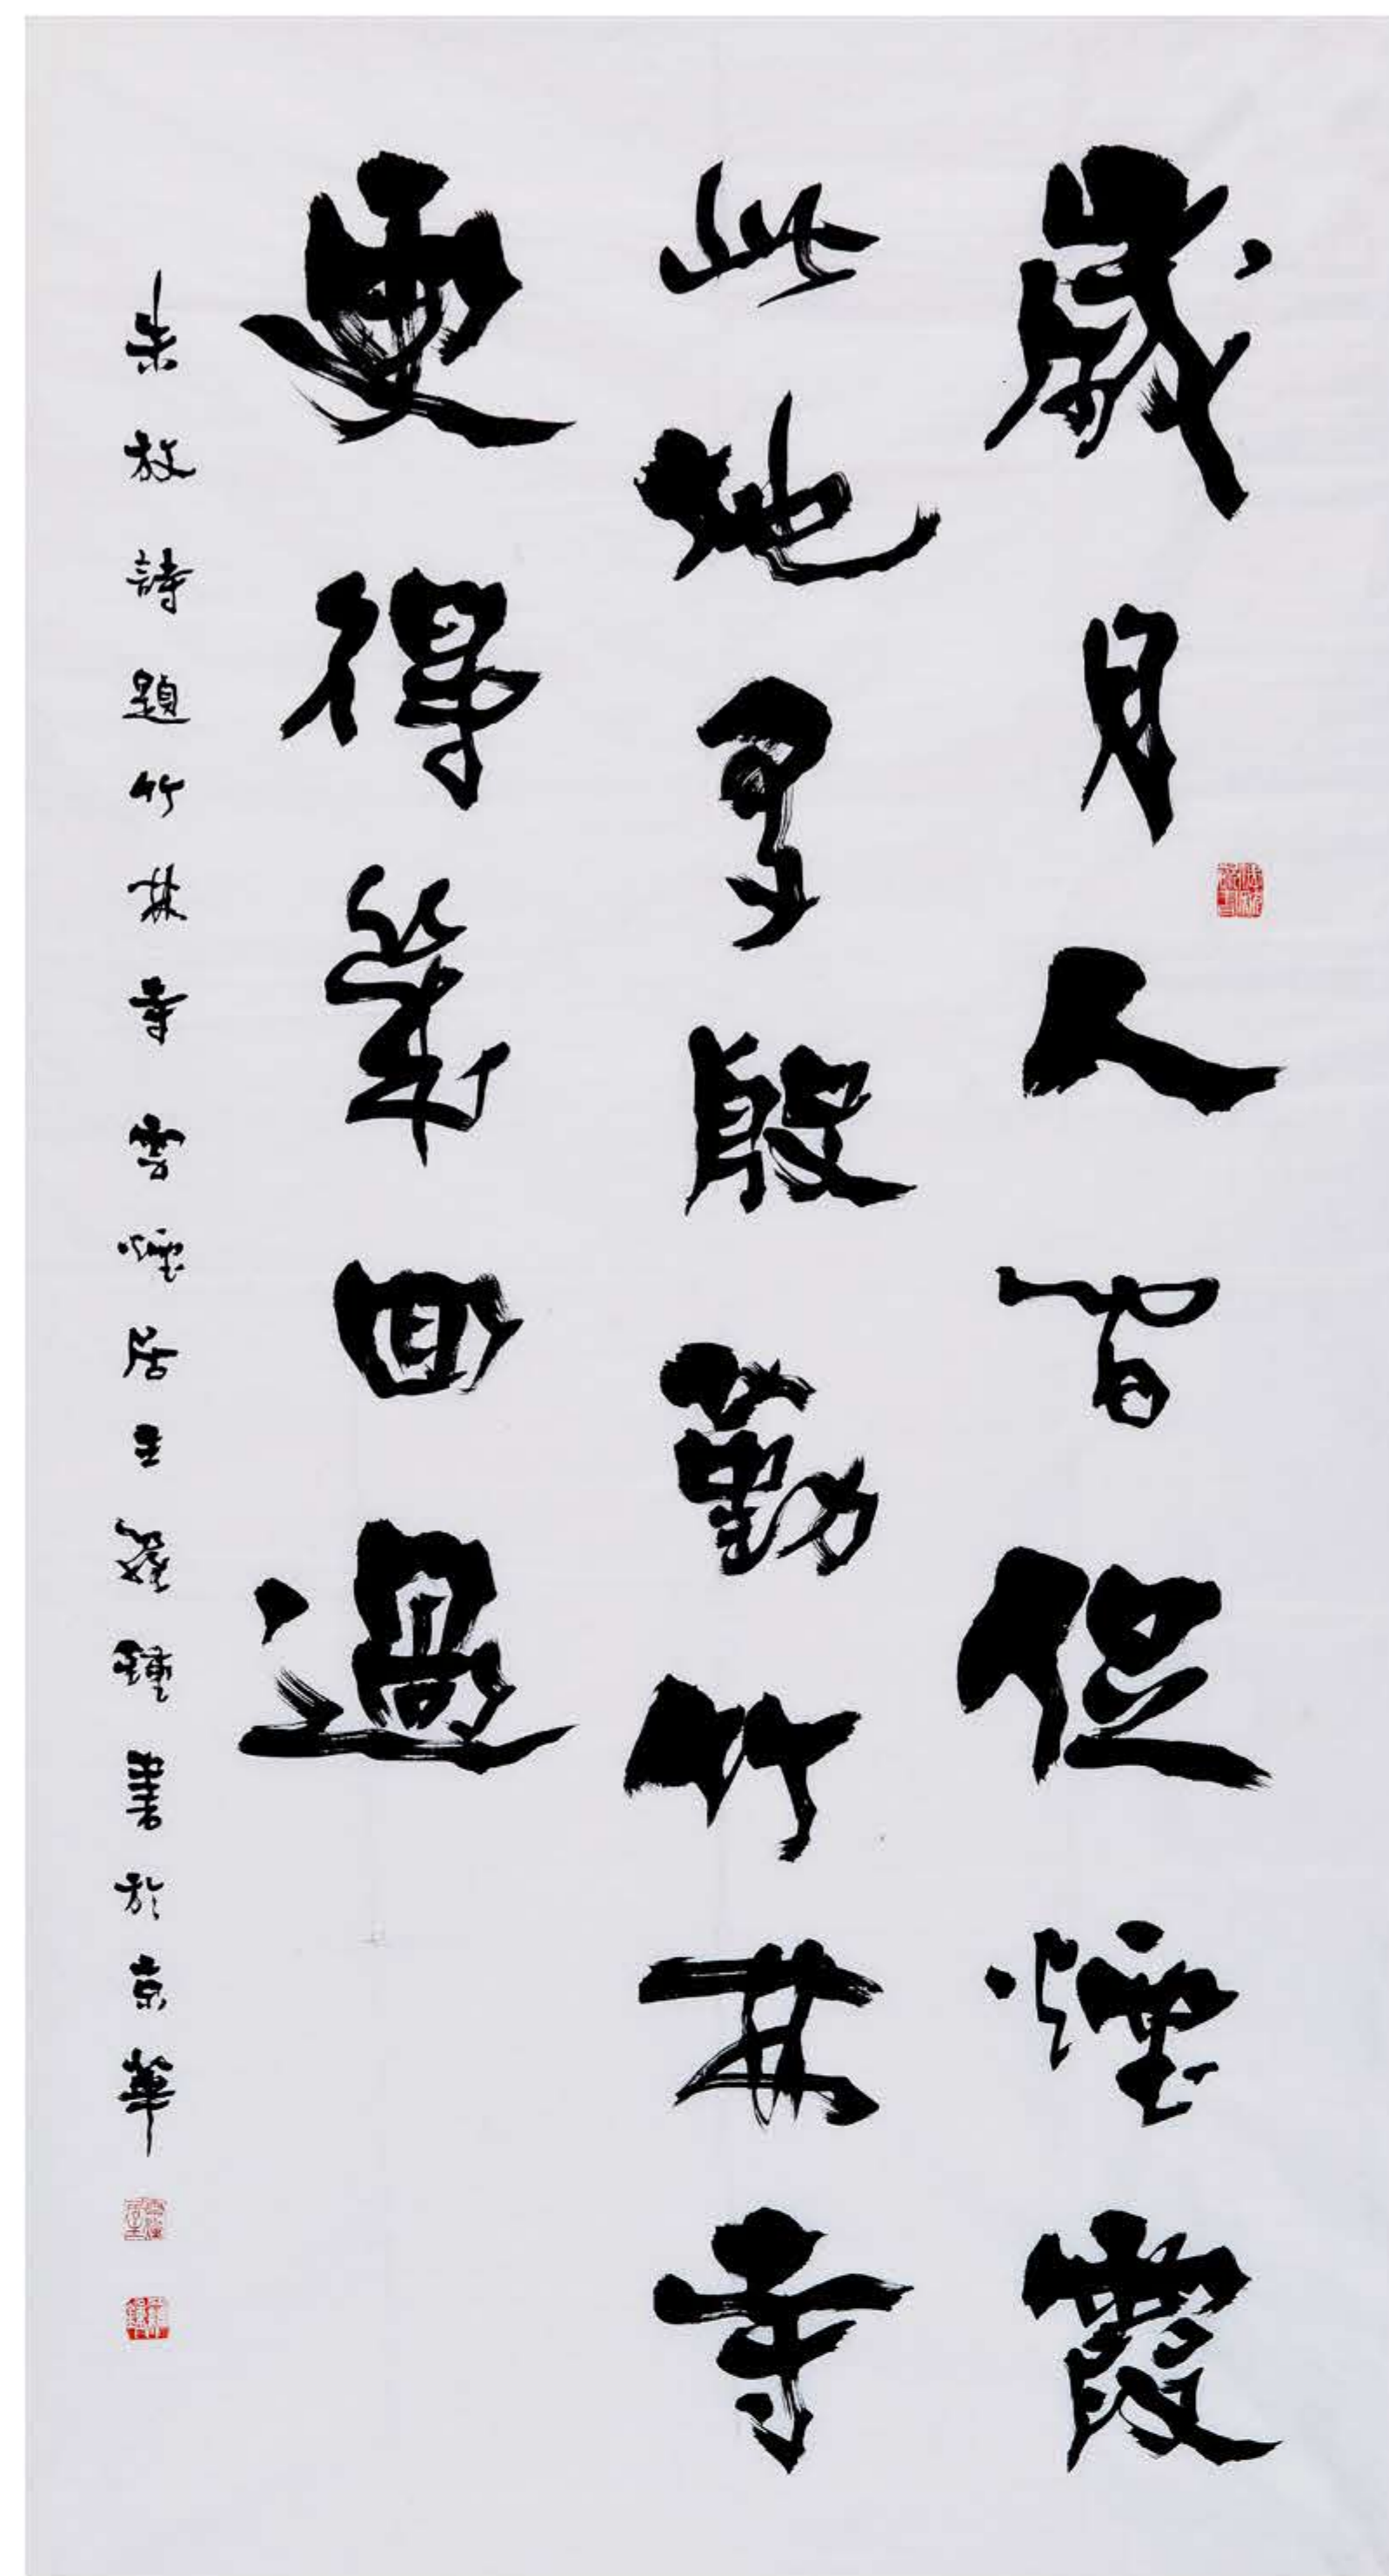 歲月人間促煙霞
此地多殷勤竹林寺
更得幾回過
朱放詩題竹林寺雲煙居主鍾書於京華